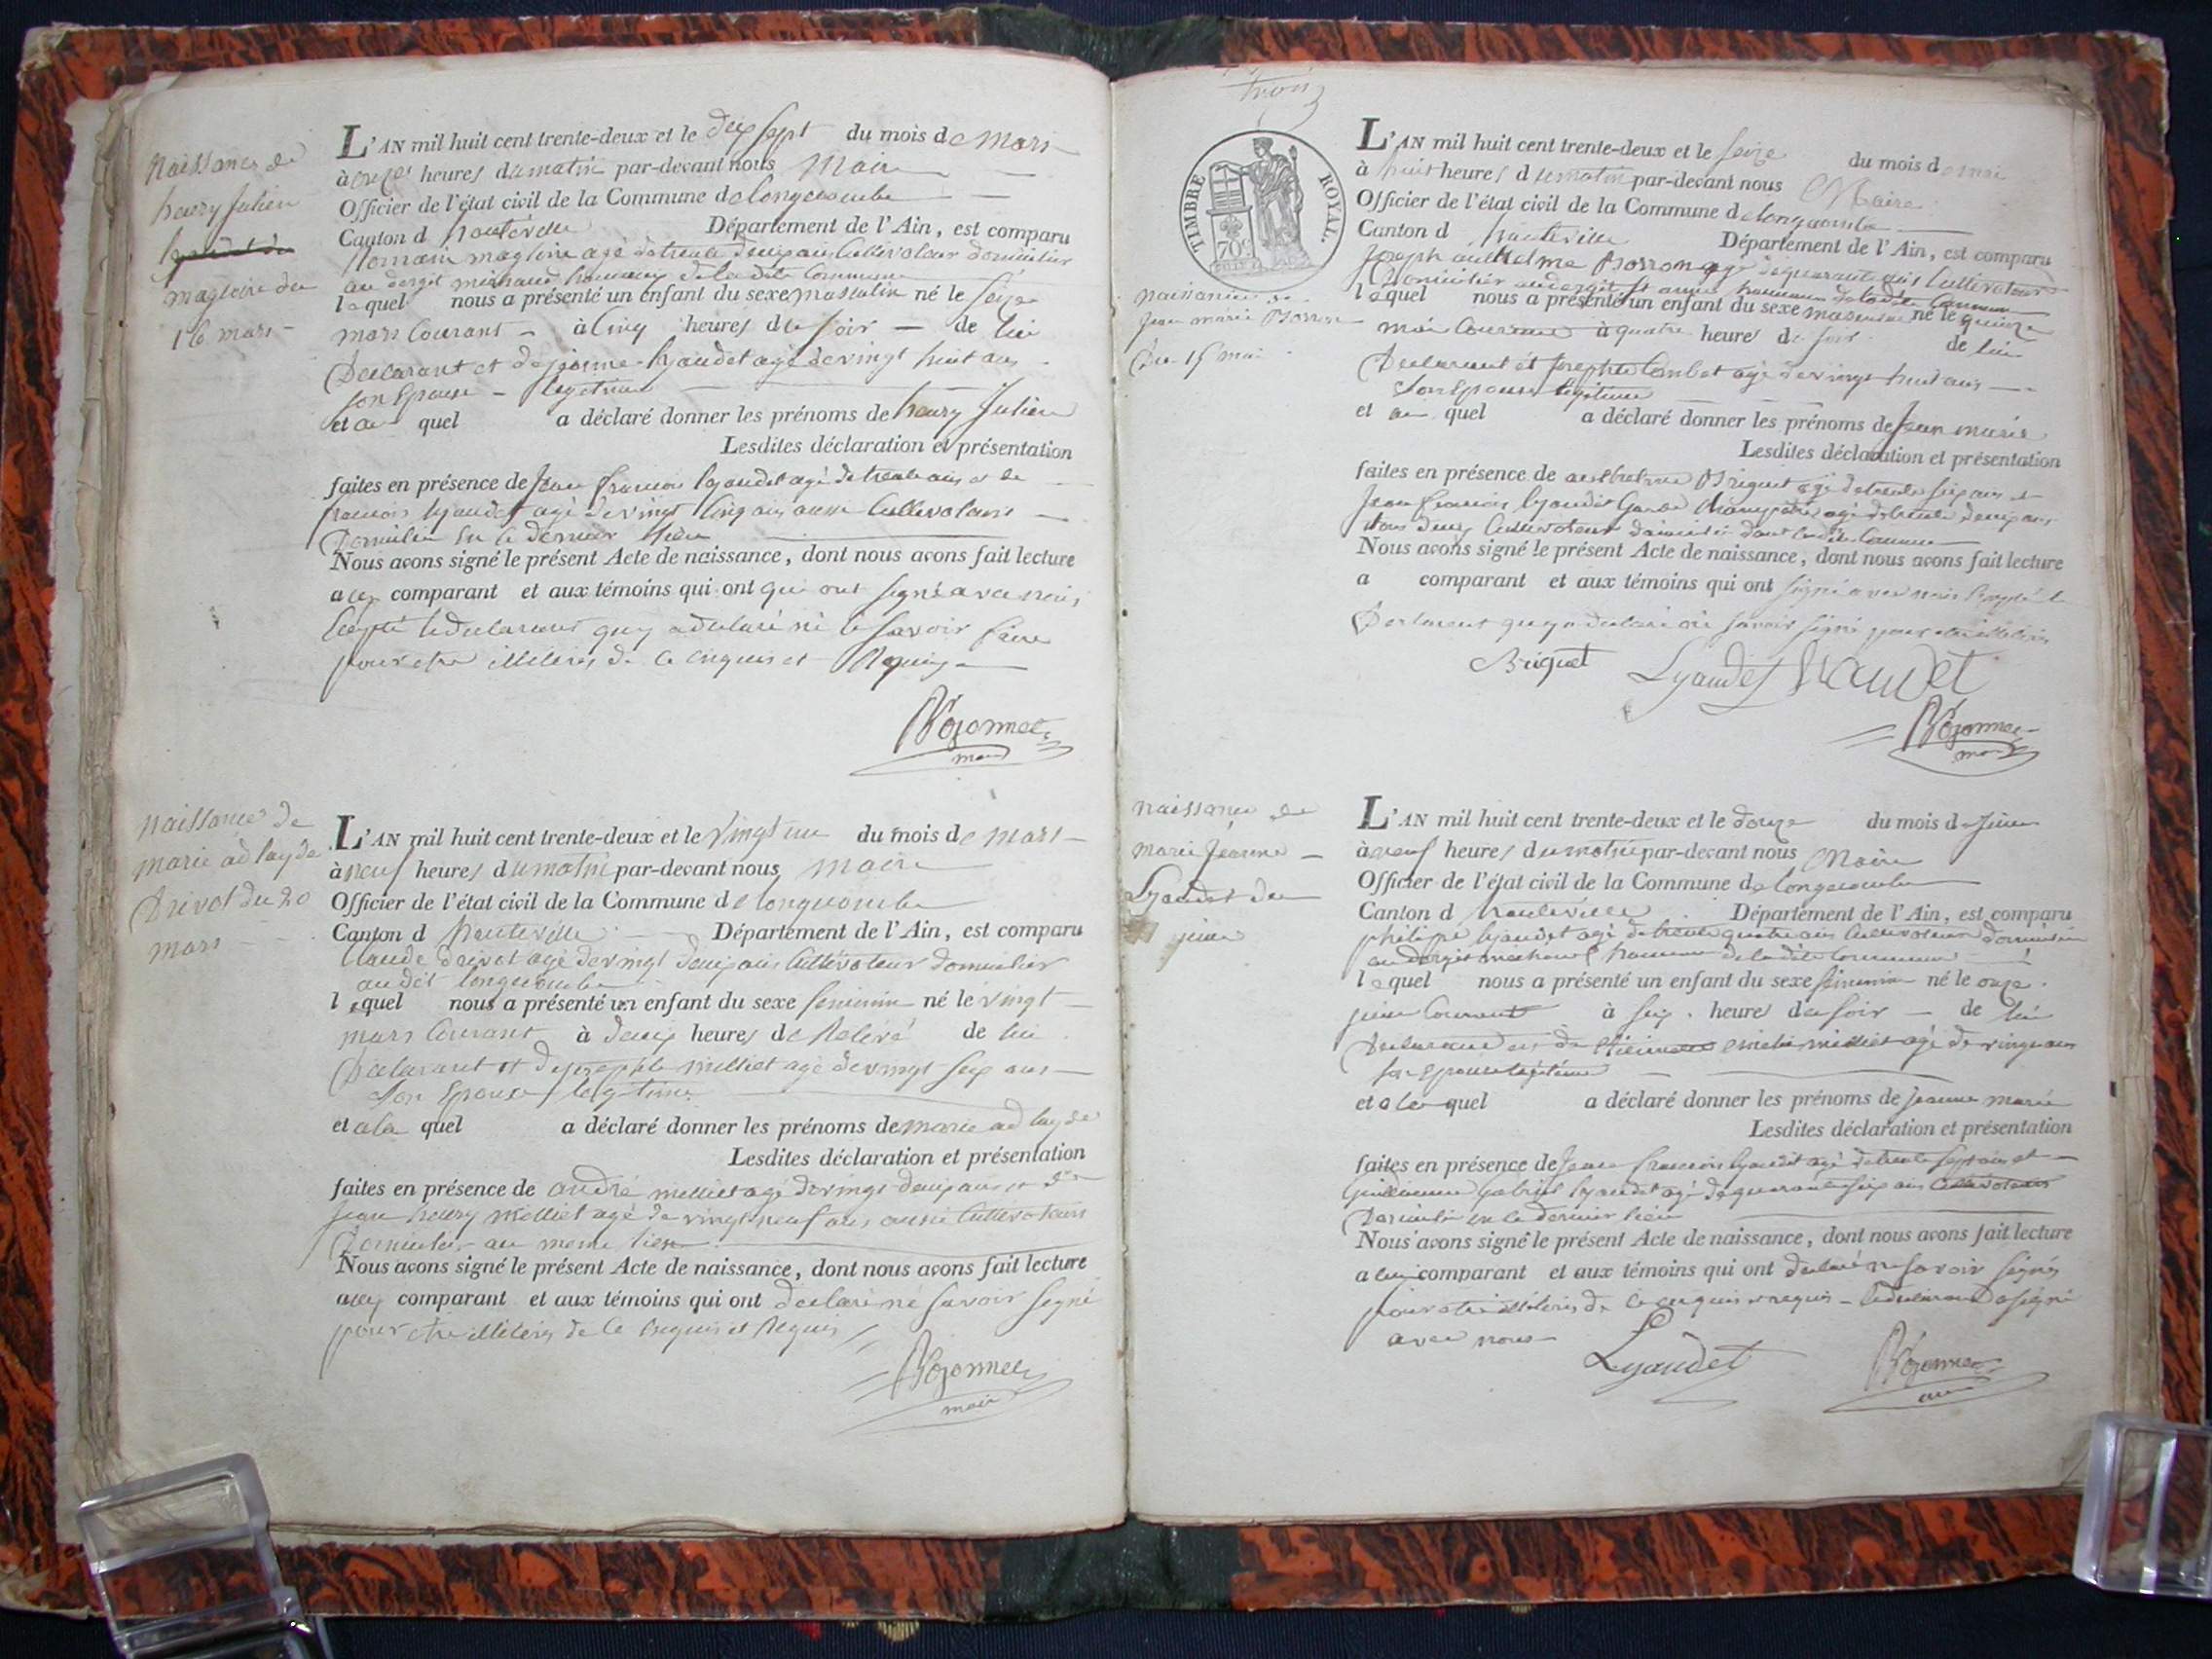 Naissance de
henry Julien
magloire du
16 mars
L'AN mil huit cent trente-deux et le dix sept du mois de Mars
à onze heures du matin par-devant nous Maire
Officier de l'état civil de la Commune de longecombe
Canton d hauteville Département de l'Ain, est comparu
Romain magloire agé de trente deux ans Cultivateur domicilier
au dergit hameaux de la dite Commune
lequel nous a présenté un enfant du sexe masculin né le seize
mars Courant à Cinq heures du soir de lui
Declarant et de josine lyaudet agé de vingt huit ans
son Epouse legitime
et au quel a déclaré donner les prénoms de henry Julien
Lesdites déclaration et présentation
faites en présence de Jean francois lyaudet agé de trente ans et de
francois lyaudet agé de vingt cinq ans aussi Cultivateurs
Domicilier en le dernier lieu
Nous avons signé le présent Acte de naissance, dont nous avons fait lecture
a comparant et aux témoins qui ont qui ont signé avec nous
le declarant quy a declaré ne le savoir faire
pour etre illiteres de ce enquis et Requis
maire
naissance de
marie adlayde
Drivot du 20
mars
L'AN mil huit cent trente-deux et le vingt un du mois de mars
à neuf heures du matin par-devant nous maire
Officier de l'état civil de la Commune de longecombe
Canton d hauteville Département de l'Ain, est comparu
Claude drivot agé de vingt deux ans Cultivateur domicilier
au dit longecombe
lequel nous a présenté un enfant du sexe feminin né le vingt
mars Courant à deux heures de Relevé de lui
Declarant et de josephte milliet agé de vingt six ans
son Epouse legitime
et a la quel a déclaré donner les prénoms de marie adlayde
Lesdites déclaration et présentation
faites en présence de andré milliet agé de vingt deux ans et de
Jean henry Milliet agé de vingt neuf ans aussi Cultivateurs
Domicilier au meme lieu
Nous avons signé le présent Acte de naissance, dont nous avons fait lecture
aux comparant et aux témoins qui ont declaré ne savoir signé
pour etre illiteres de ce enquis et Requis
maire
trois
TIMBRE ROYAL.
70c
naissance de
Jean marie
du 15 mai
L'AN mil huit cent trente-deux et le seize du mois de mai
à huit heures du matin par-devant nous Maire
Officier de l'état civil de la Commune de longecombe
Canton d hauteville Département de l'Ain, est comparu
Joseph anthelme agé de quarante ans Cultivateur
Domicilier au dergit hameau de la dite Commune
lequel nous a présenté un enfant du sexe masculin né le quinze
mai Courant à quatre heures du soir de lui
Declarant et josephte Combet agé de vingt huit ans
son Epouse legitime
et au quel a déclaré donner les prénoms de Jean marie
Lesdites déclaration et présentation
faites en présence de anthelme Briguet agé de trente six ans et
Jean francois lyaudet Garde Champetre agé de trente deux ans
tous deux Cultivateurs domicilié dans la dite Commune
Nous avons signé le présent Acte de naissance, dont nous avons fait lecture
a comparant et aux témoins qui ont signé avec nous
quy a declaré ne savoir signé pour etre illiteres
Briguet Lyaudet
naissance de
marie jeanne
Lyaudet du
juin
L'AN mil huit cent trente-deux et le douze du mois de Juin
à neuf heures du matin par-devant nous Maire
Officier de l'état civil de la Commune de longecombe
Canton d hauteville Département de l'Ain, est comparu
philippe lyaudet agé de trente quatre ans Cultivateur domicilier
au dergit hameau de la dite Commune
lequel nous a présenté un enfant du sexe feminin né le onze
juin Courant à six heures du soir de lui
Declarant et de milliet agé de vingt ans
son Epouse legitime
et a la quel a déclaré donner les prénoms de jeanne marie
Lesdites déclaration et présentation
faites en présence de Jean francois lyaudet agé de trente sept ans et
Guillaume Gabriel lyaudet agé de quarante six ans Cultivateurs
Domicilié en le dernier lieu
Nous avons signé le présent Acte de naissance, dont nous avons fait lecture
a comparant et aux témoins qui ont declaré ne savoir signés
pour etre illiteres de ce enquis et requis le declarant a signé
avec nous
Lyaudet